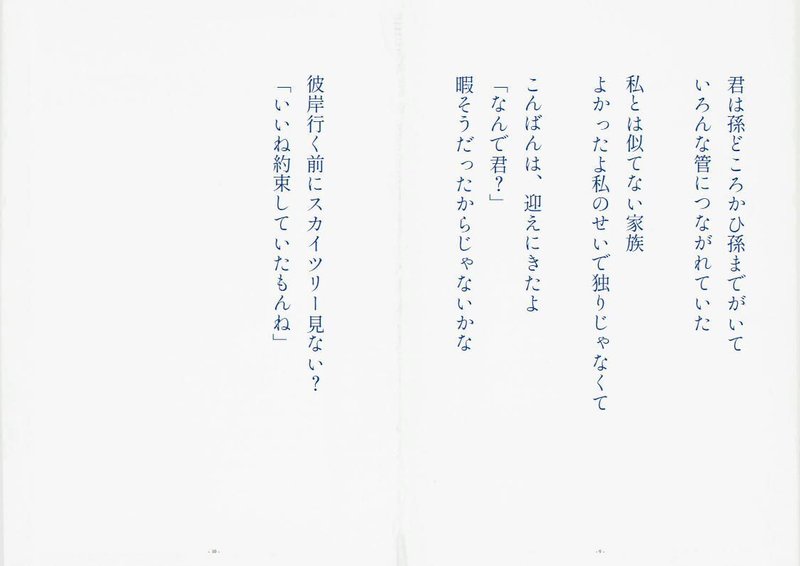 君は孫どころかひ孫までがいて
いろんな管につながれていた
私とは似てない家族
よかったよ私のせいで独りじゃなくて
こんばんは、迎えにきたよ
「なんで君？」
暇そうだったからじゃないかな
- 9 -
彼岸行く前にスカイツリー見ない？
「いいね約束していたもんね」
- 10 -